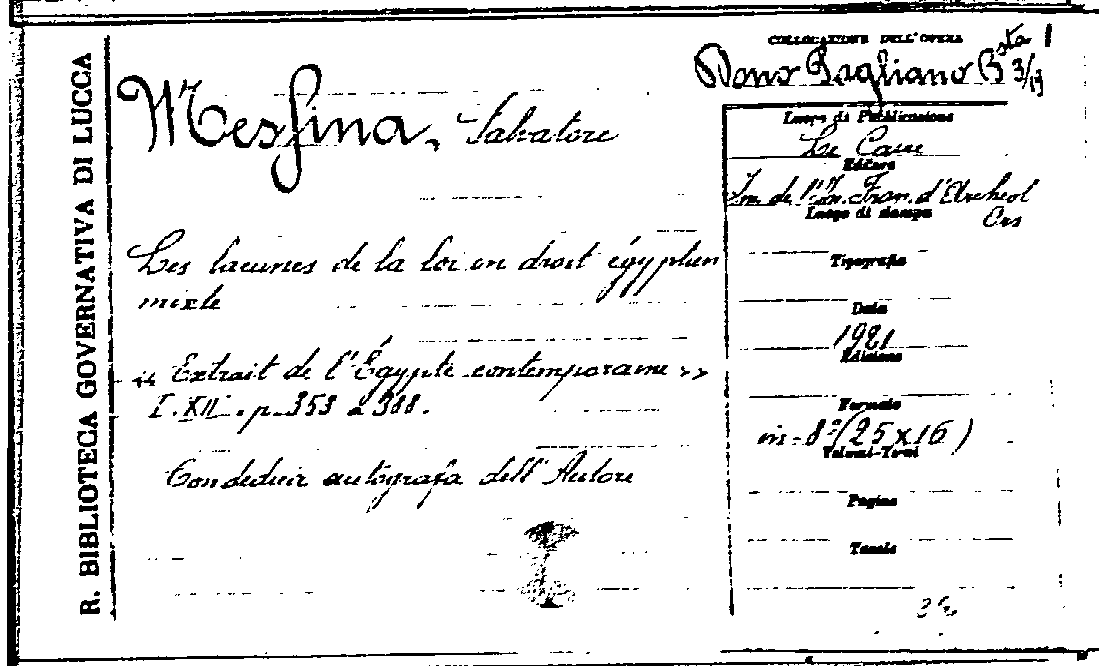 R. BIBLIOTECA GOVERNATIVA DI LUCCA
COLLOCAZIONE DELL'OPERA
Dono Pagliano Bsta 1
3/13
Messina, Salvatore
Les lacunes de la loi en droit égyptien
mixte
« Extrait de l'Égypte contemporaine »
T. XII. p. 353 a 388.
Con dedica autografa dell'Autore
Luogo di Pubblicazione
Le Caire
Editore
Im. de l'In. Fran. d'Archeol
Ors
Luogo di stampa
Tipografia
Data
1921
Edizione
Formato
in-8º (25x16)
Volumi-Tomi
Pagine
Tavole